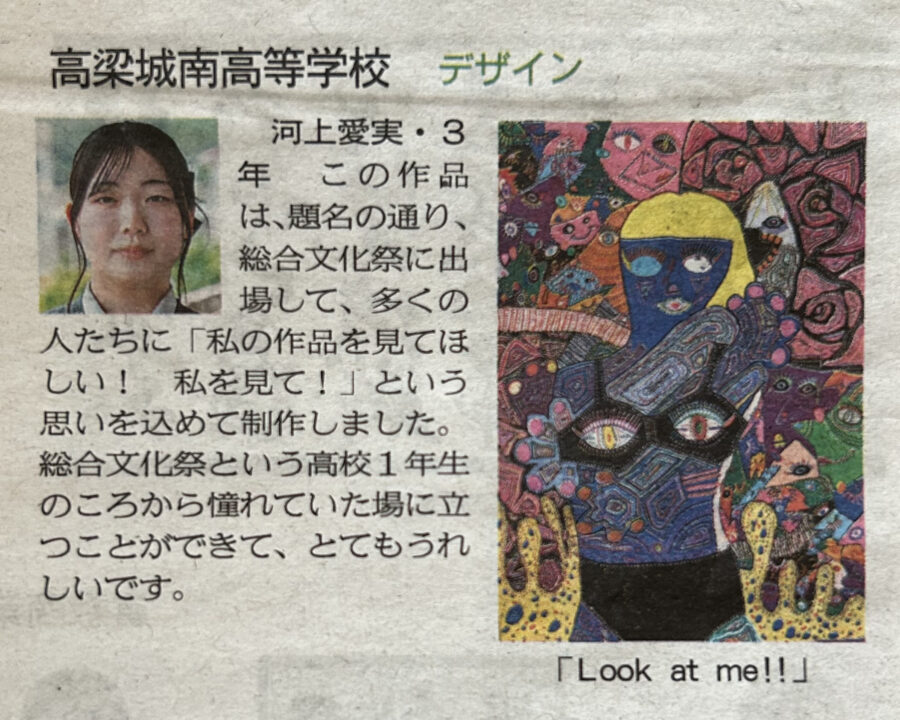 高梁城南高等学校　デザイン
河上愛実・３
年　この作品
は、題名の通り、
総合文化祭に出
場して、多くの
人たちに「私の作品を見てほ
しい！　私を見て！」という
思いを込めて制作しました。
総合文化祭という高校１年生
のころから憧れていた場に立
つことができて、とてもうれ
しいです。
「Look at me!!」